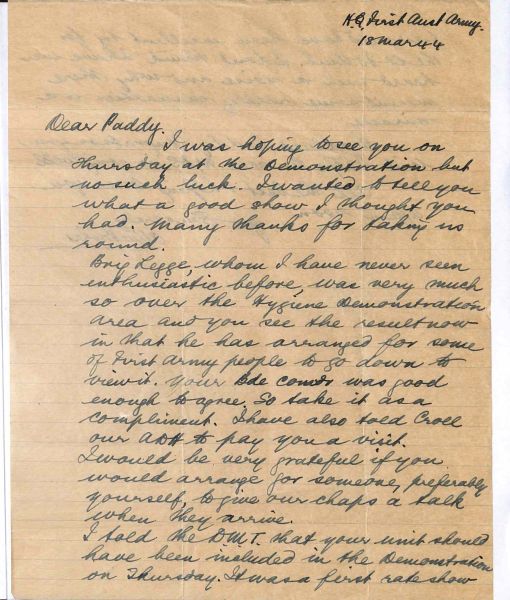 H.Q. First Aust Army.
18 Mar 44
Dear Paddy.
I was hoping to see you on
Thursday at the Demonstration but
no such luck. I wanted to tell you
what a good show I thought you
had. Many thanks for taking us
round.
Brig Legge, whom I have never seen
enthusiastic before, was very much
so over the Hygiene Demonstration
area and you see the result now
in that he has arranged for some
of First Army people to go down to
view it. Your Bde comdr was good
enough to agree. So take it as a
compliment. I have also told Croll
our ADH to pay you a visit.
I would be very grateful if you
would arrange for someone, preferably
yourself, to give our chaps a talk
when they arrive.
I told the D.M.T. that your unit should
have been included in the Demonstration
on Thursday. It was a first rate show